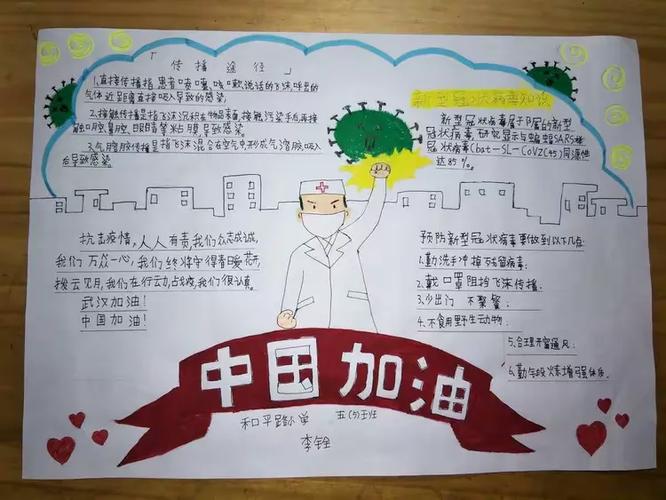 「传播途径」
1、直接传播指患者喷嚏、咳嗽、说话的飞沫,呼出的
气体近距离直接吸入导致的感染,
2、接触传播是指飞沫沉积在物品表面,接触污染手后,再接
触口腔、鼻腔、眼睛等粘膜,导致感染,
3、气溶胶传播是指飞沫混合在空气中,形成气溶胶,吸入
后导致感染。
新型冠状病毒知识
新型冠状病毒属于β属的新型
冠状病毒,研究显示与蝙蝠SARS样
冠状病毒(bat-SL-CoVZC45)同源性
达85%。
抗击疫情,人人有责,我们众志成诚,
我们万众一心,我们终将守得春暖花开,
拨云见月,我们在行动,占疫,我们很认真。
武汉加油!
中国加油!
预防新型冠状病毒要做到以下几点:
1、勤洗手冲掉残留病毒;
2、戴口罩阻挡飞沫传播;
3、少出门 不聚餐;
4、不食用野生动物;
5、合理开窗通风;
6、勤加锻炼增强体质。
中国加油
和平路小学 五(5)班
李铨